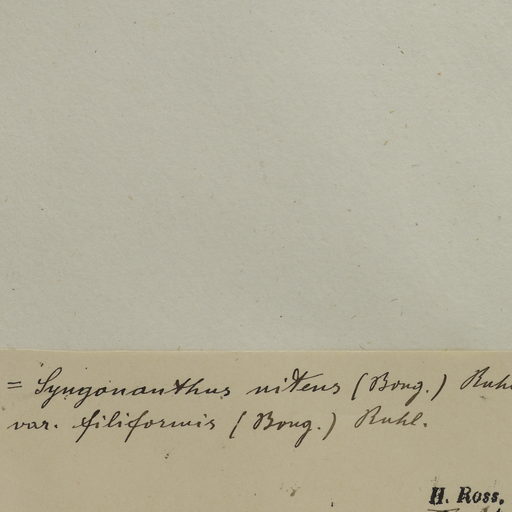 = Syngonanthus nitens (Bong.) Ruhl
var. filiformis (Bong.) Ruhl.
H. Ross.